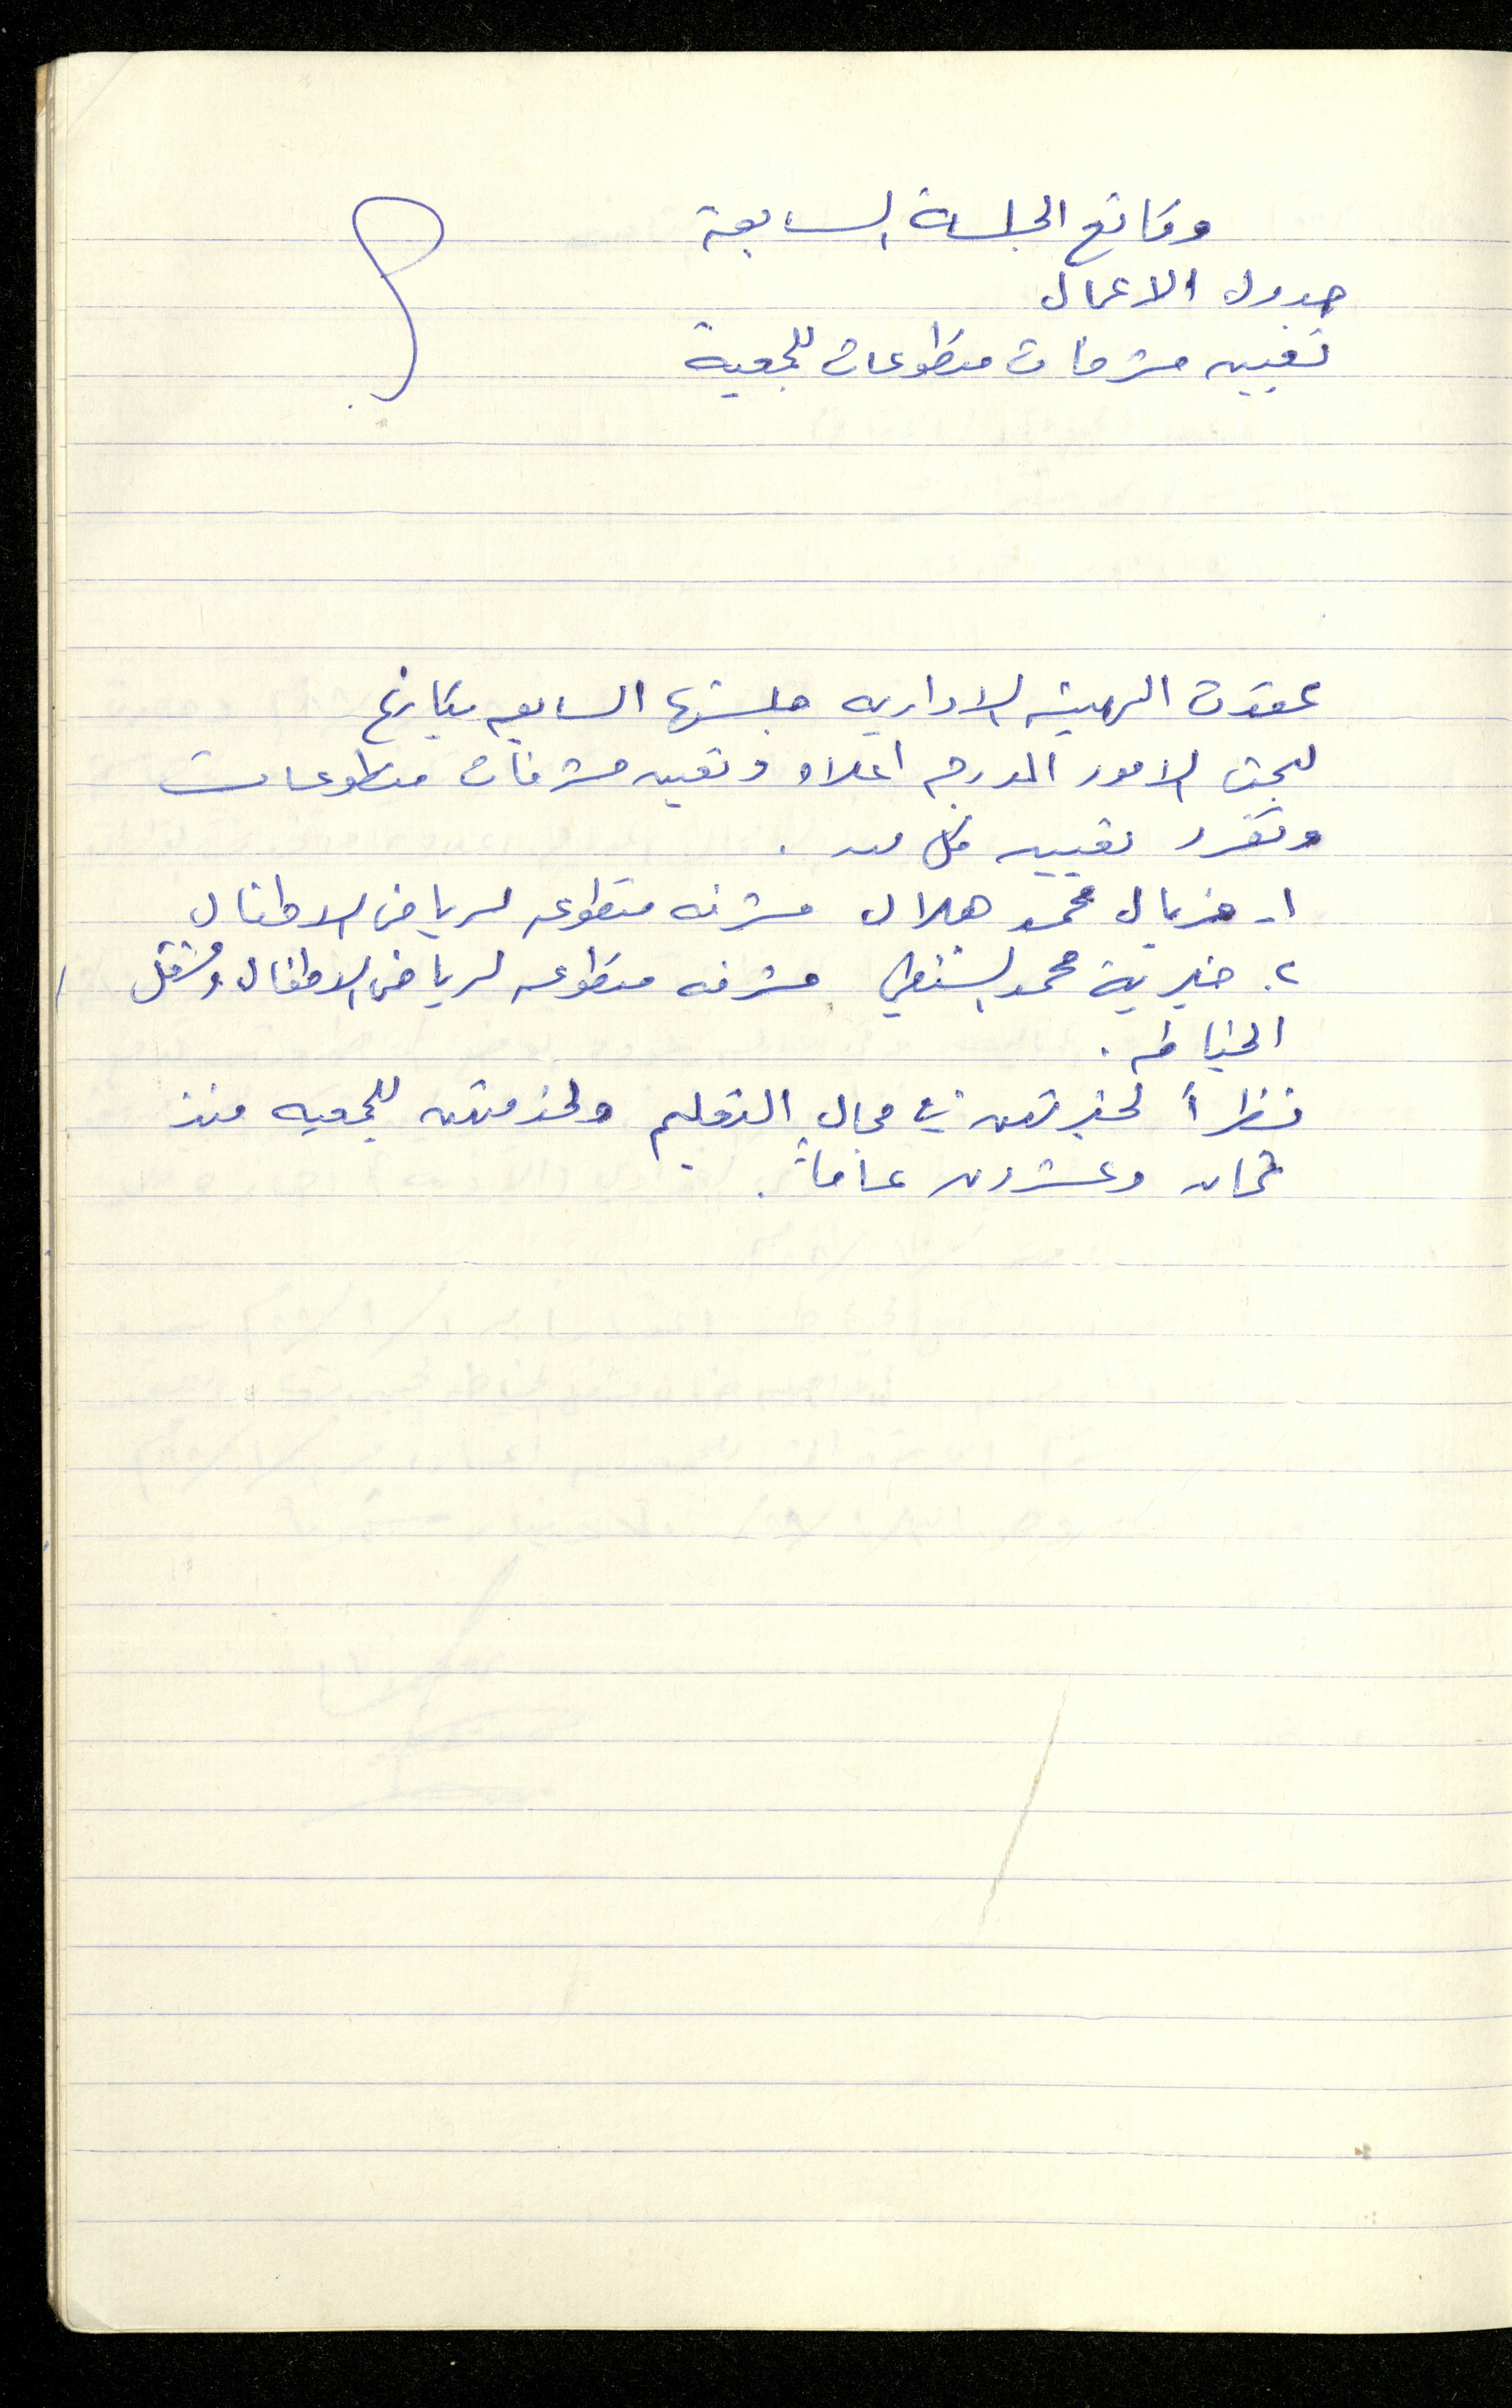 وقائع الجلسة السابعة
جدول الاعمال
تعيين مشرفات متطوعات للجمعية
عقدت الهيئه الاداريه جلستها السابعه بتاريخ
لبحث الامور المدرجه اعلاه وتعيين مشرفات متطوعات
وتقرر تعيين كل من .
١- فريال محمد هلال مشرفه متطوعه لرياض الاطفال
٢. خيرية محمد مشرفه متطوعه لرياض الاطفال ومشغل
الخياطه .
نظراً لخبرتهن في مجال التعليم ولخدمتهن للجمعيه منذ
ثمان وعشرون عاماً .